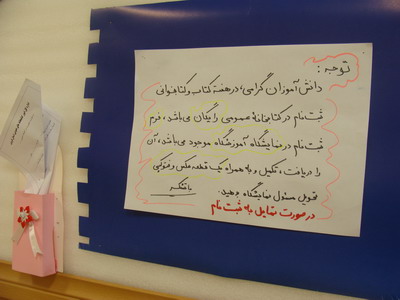 توجه :
دانش آموزان گرامی، در هفته کتاب و کتابخوانی
ثبت نام در کتابخانه عمومی رایگان می باشد، فرم
ثبت نام در نمایشگاه آموزشگاه موجود می باشد، آن
را دریافت، تکمیل و به همراه یک قطعه عکس و فتوکپی
تحویل مسئول نمایشگاه بدهید. باتشکر
در صورت تمایل به ثبت نام